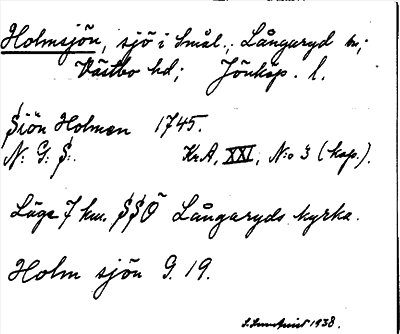 Holmsjön, sjö i Smål.; Långaryd sn;
Västbo hd; Jönköp. l.
Siön Holmen 1745.
N: G: S:. KrA, XXI, N:o 3 (kop.).
Läge 7 km. SSO Långaryds kyrka.
Holm sjön G. 19.
1938.